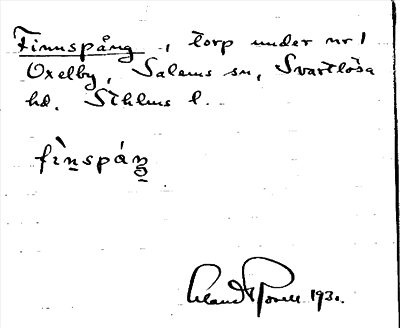 Finnspång, torp under nr 1
Oxelby, Salems sn, Svartlösa
hd. Sthlms l.
fìn̲spáŋ̲
1930.